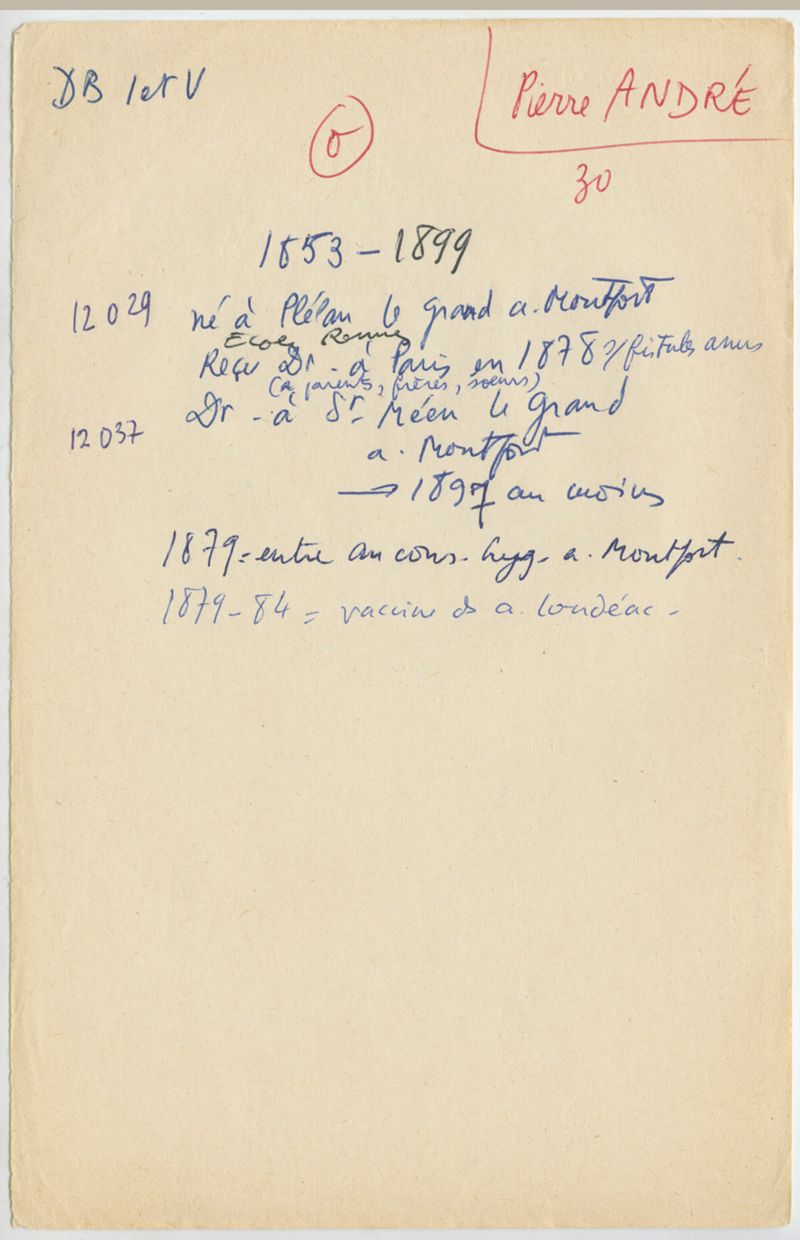 DB 1 et V
Pierre ANDRÉ
0
30
1853 - 1899
12 029 né à Plélan le grand a. Montfort
Ecole Rennes
Reçu Dr. à Paris en 1878 s/ fistules anus
(à parents, frères, soeurs)
Dr - à St- Méen le grand
12 037
a. Montfort
→ 1897 au moins
1879 = entre au cons. hyg. a. Montfort.
1879 - 84 = vaccine ds a. Loudéac -